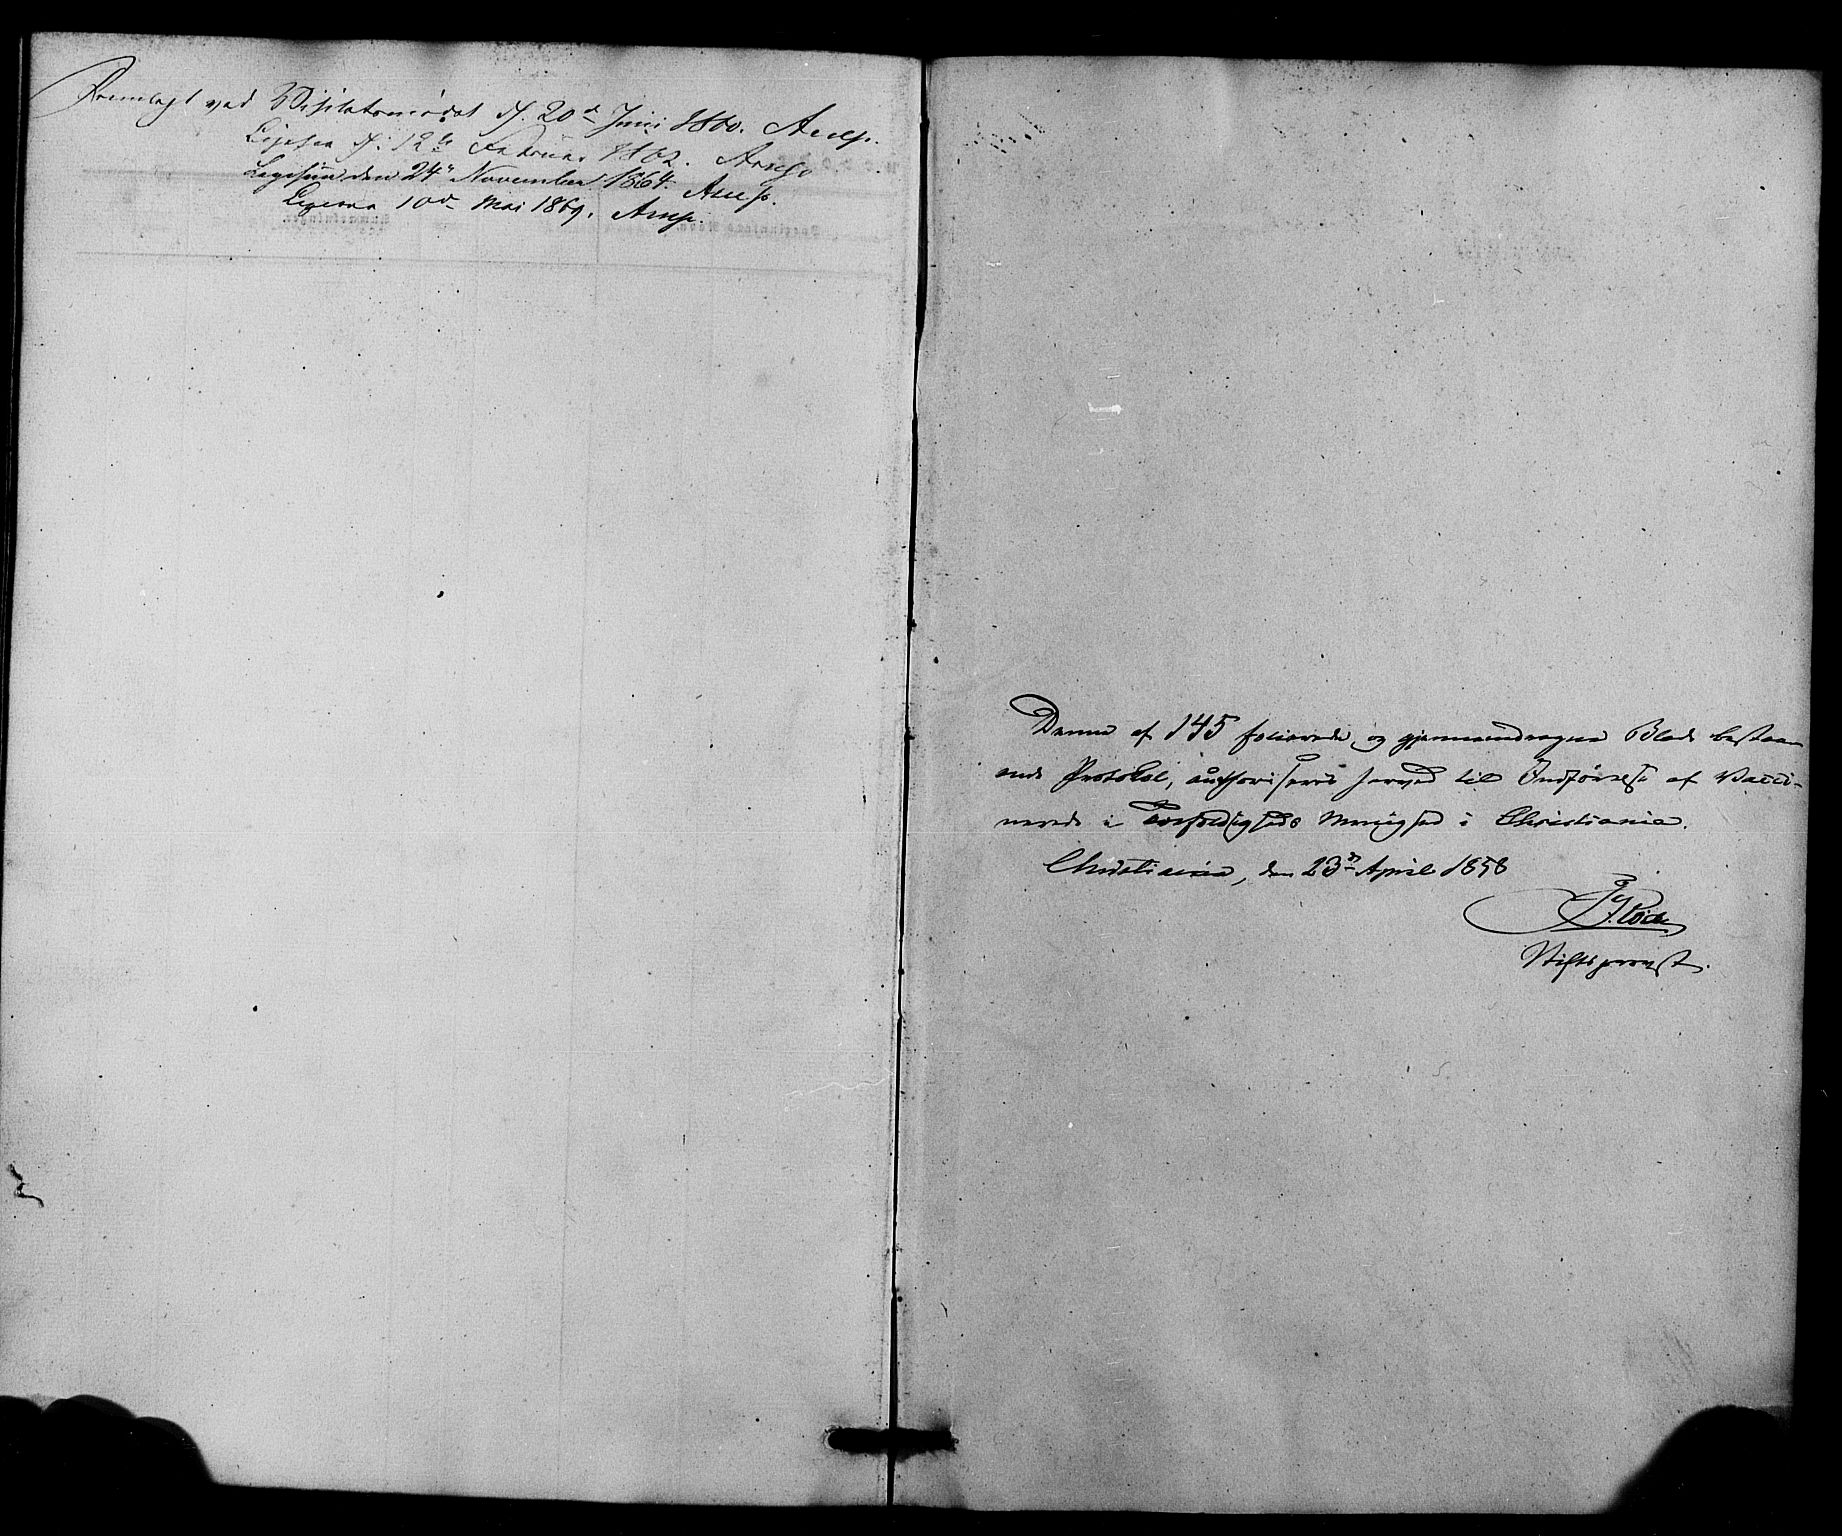 Fremlagt ved Visitatsmødet d. 20d Juni 1860. Arup.
Ligesaa d: 12te Februar 1862. Arup
Ligesaa den 24de November 1864. Arup.
Ligesaa 10de Mai 1869. Arup.
Denne af 145 folierede og gjennemdragne Blade bestaa-
ende Protokol, authoriseres herved til Indførelse af Vacci-
nerede i Trefoldigheds Menighed i Christiania.
Christiania, den 23de April 1858
Stiftsprovst.